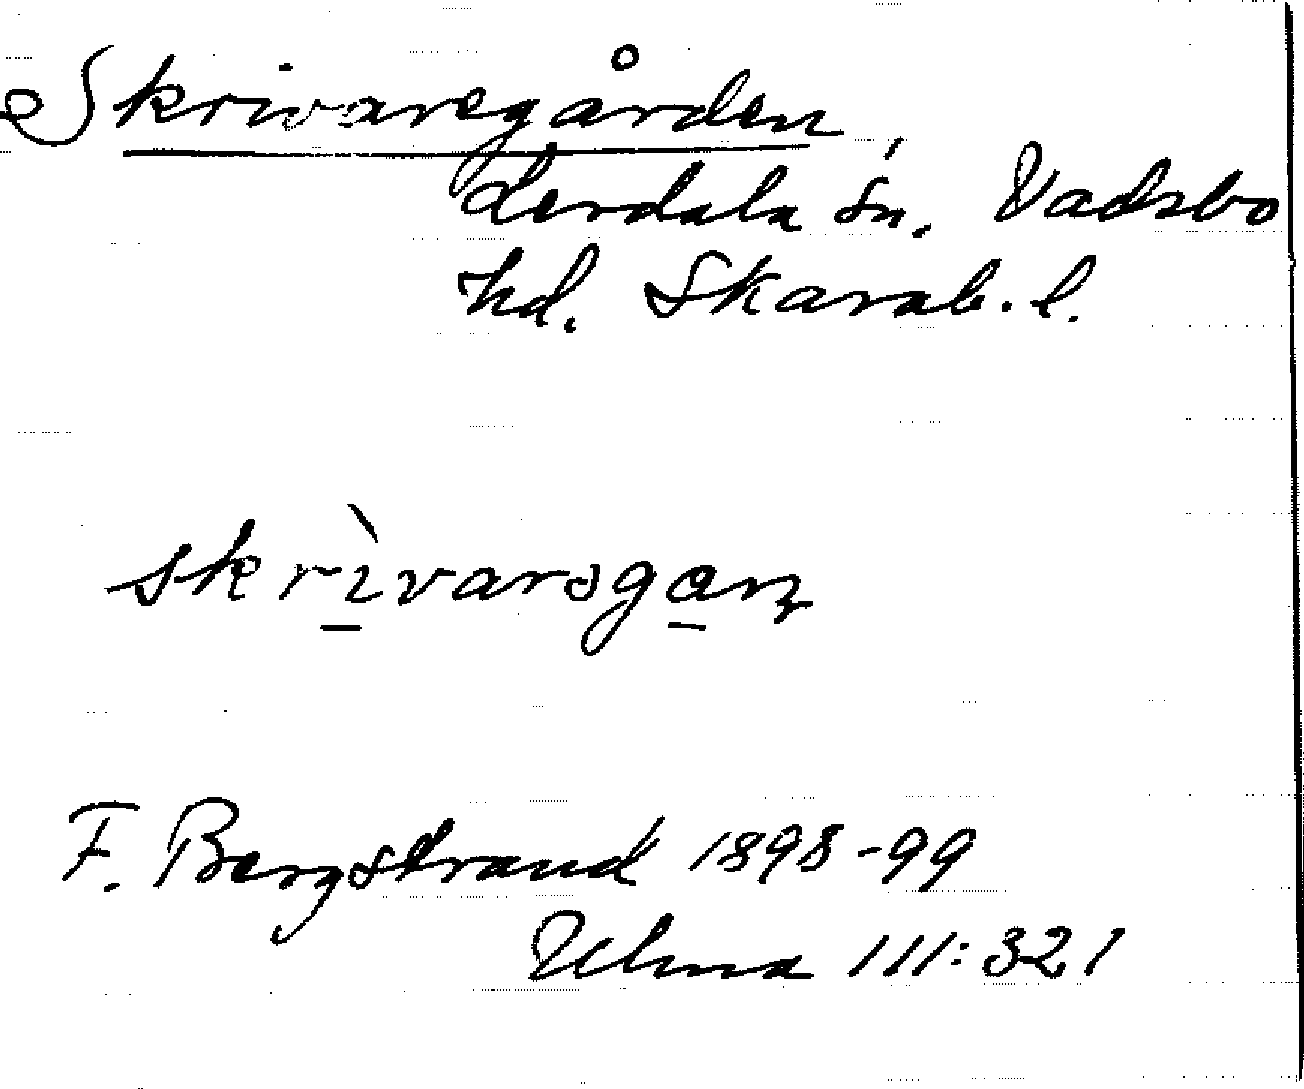 Skrivaregården,
Lerdala sn. Vadsbo
hd. Skarab. l.
skrìvarəgan
F. Bergstrand 1898-99
Ulma 111:321